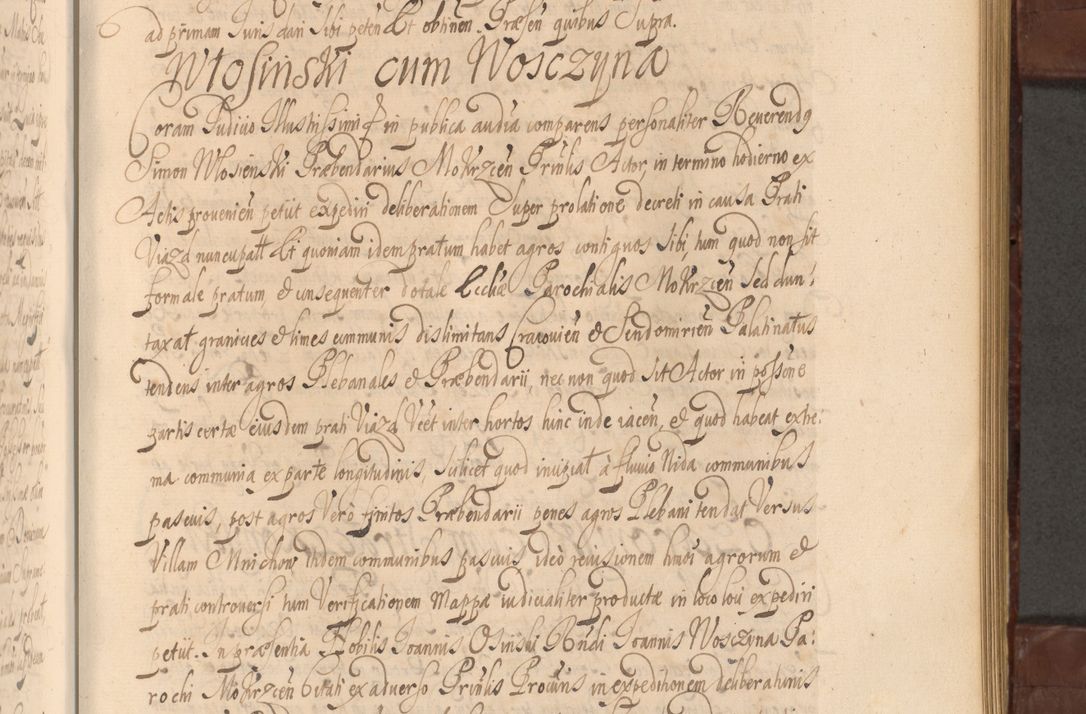 ad primam Juris dari sibi peten Et obtinen. Præsen quibus Supra.
Włosinski cum Wosczyna
Coram Judicio Illustrissimi &c in publica audia comparens personaliter Reverendg
Simon Włosienski Præbendarius Mokrzcen Prinlis Actor, in termino hodierno ex
Actis provenien petiit expediri deliberationem Super prolatione decreti in causa Prati
Viazd nuncupatt Et quoniam idem pratum habet agros contiguos sibi, tum quod non sit
formale pratum et consequenter dotale Eccliæ Parochialis Mokrzcen sed dun:
taxat granicies et limes communis dislimitans Cracovien et Sendomirien Palatinatus
tendens inter agros Plebanales et Præbendarii, nec non quod sit Actor in possione
partis certæ eiusdem prati Viazd Veet inter hortos hinc inde iacen, et quod habeat extre:
ma communia ex parte longitudinis, scilicet quod incipiat à fluvio Nida communibus
pascuis, post agros Verò finitos Præbendarii penes agros Plebani tendat Versus
Villam Mnichow itidem communibus pascuis, ideò revisionem hmoi agrorum et
prati controversi tum Verificationem Mappæ iudicialiter productæ in loco loci expediri
petiit. In præsentia Nobilis Joannis Osinski Rndi Joannis Wosczyna Pa:
rochi Mokrzcen Citati ex adverso Prinlis Procuris in expeditionem deliberationis